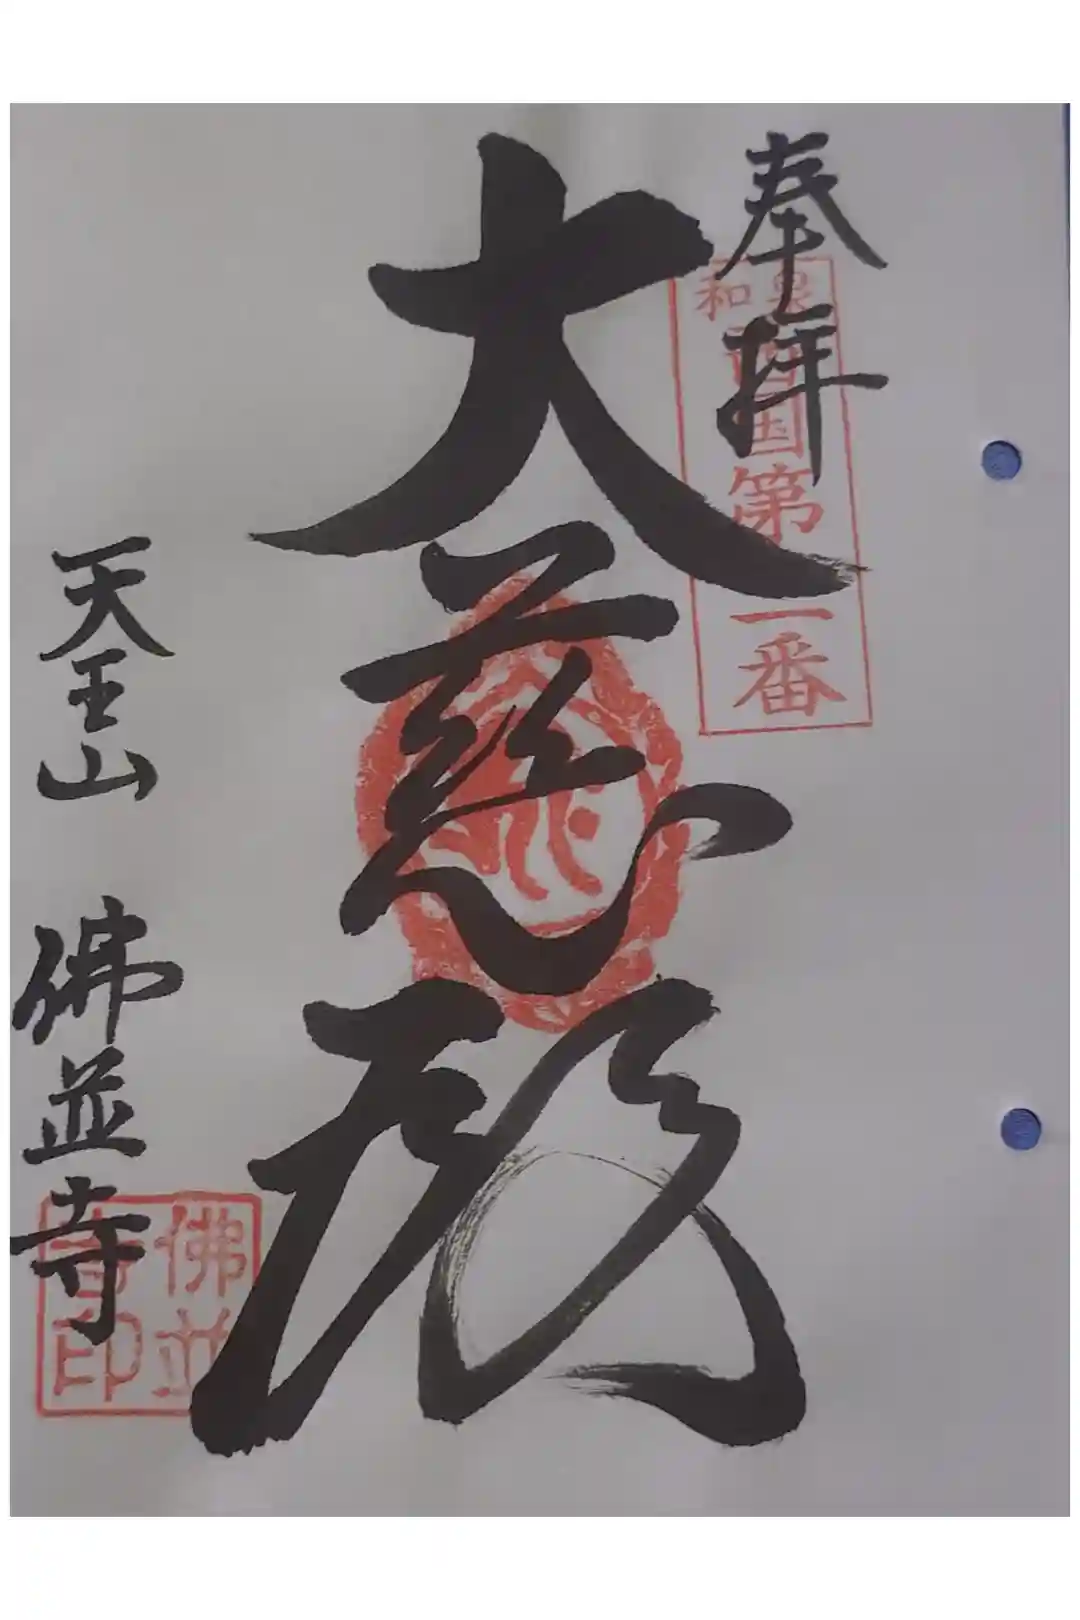 奉拝
和泉
西国第一番
大慈殿
天王山 佛並寺
佛並
寺印